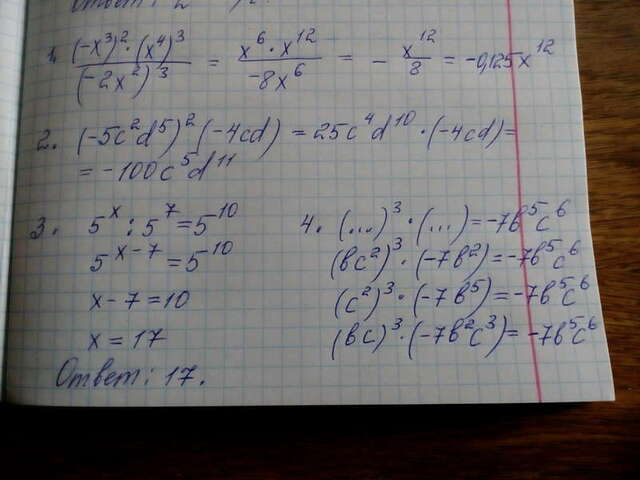 Ответ: 2
1. (-x³)²·(x⁴)³ / (-2x²)³ = x⁶·x¹² / -8x⁶ = - x¹²/8 = -0,125x¹²
2. (-5c²d⁵)²(-4cd) = 25c⁴d¹⁰·(-4cd)=
= -100c⁵d¹¹
3. 5ˣ : 5⁷ = 5¹⁰
5ˣ⁻⁷ = 5¹⁰
x-7=10
x = 17
Ответ: 17.
4. (...)³·(...)=-7b⁵c⁶
(bc²)³·(-7b²)=-7b⁵c⁶
(c²)³·(-7b⁵)=-7b⁵c⁶
(bc)³·(-7b²c³)=-7b⁵c⁶